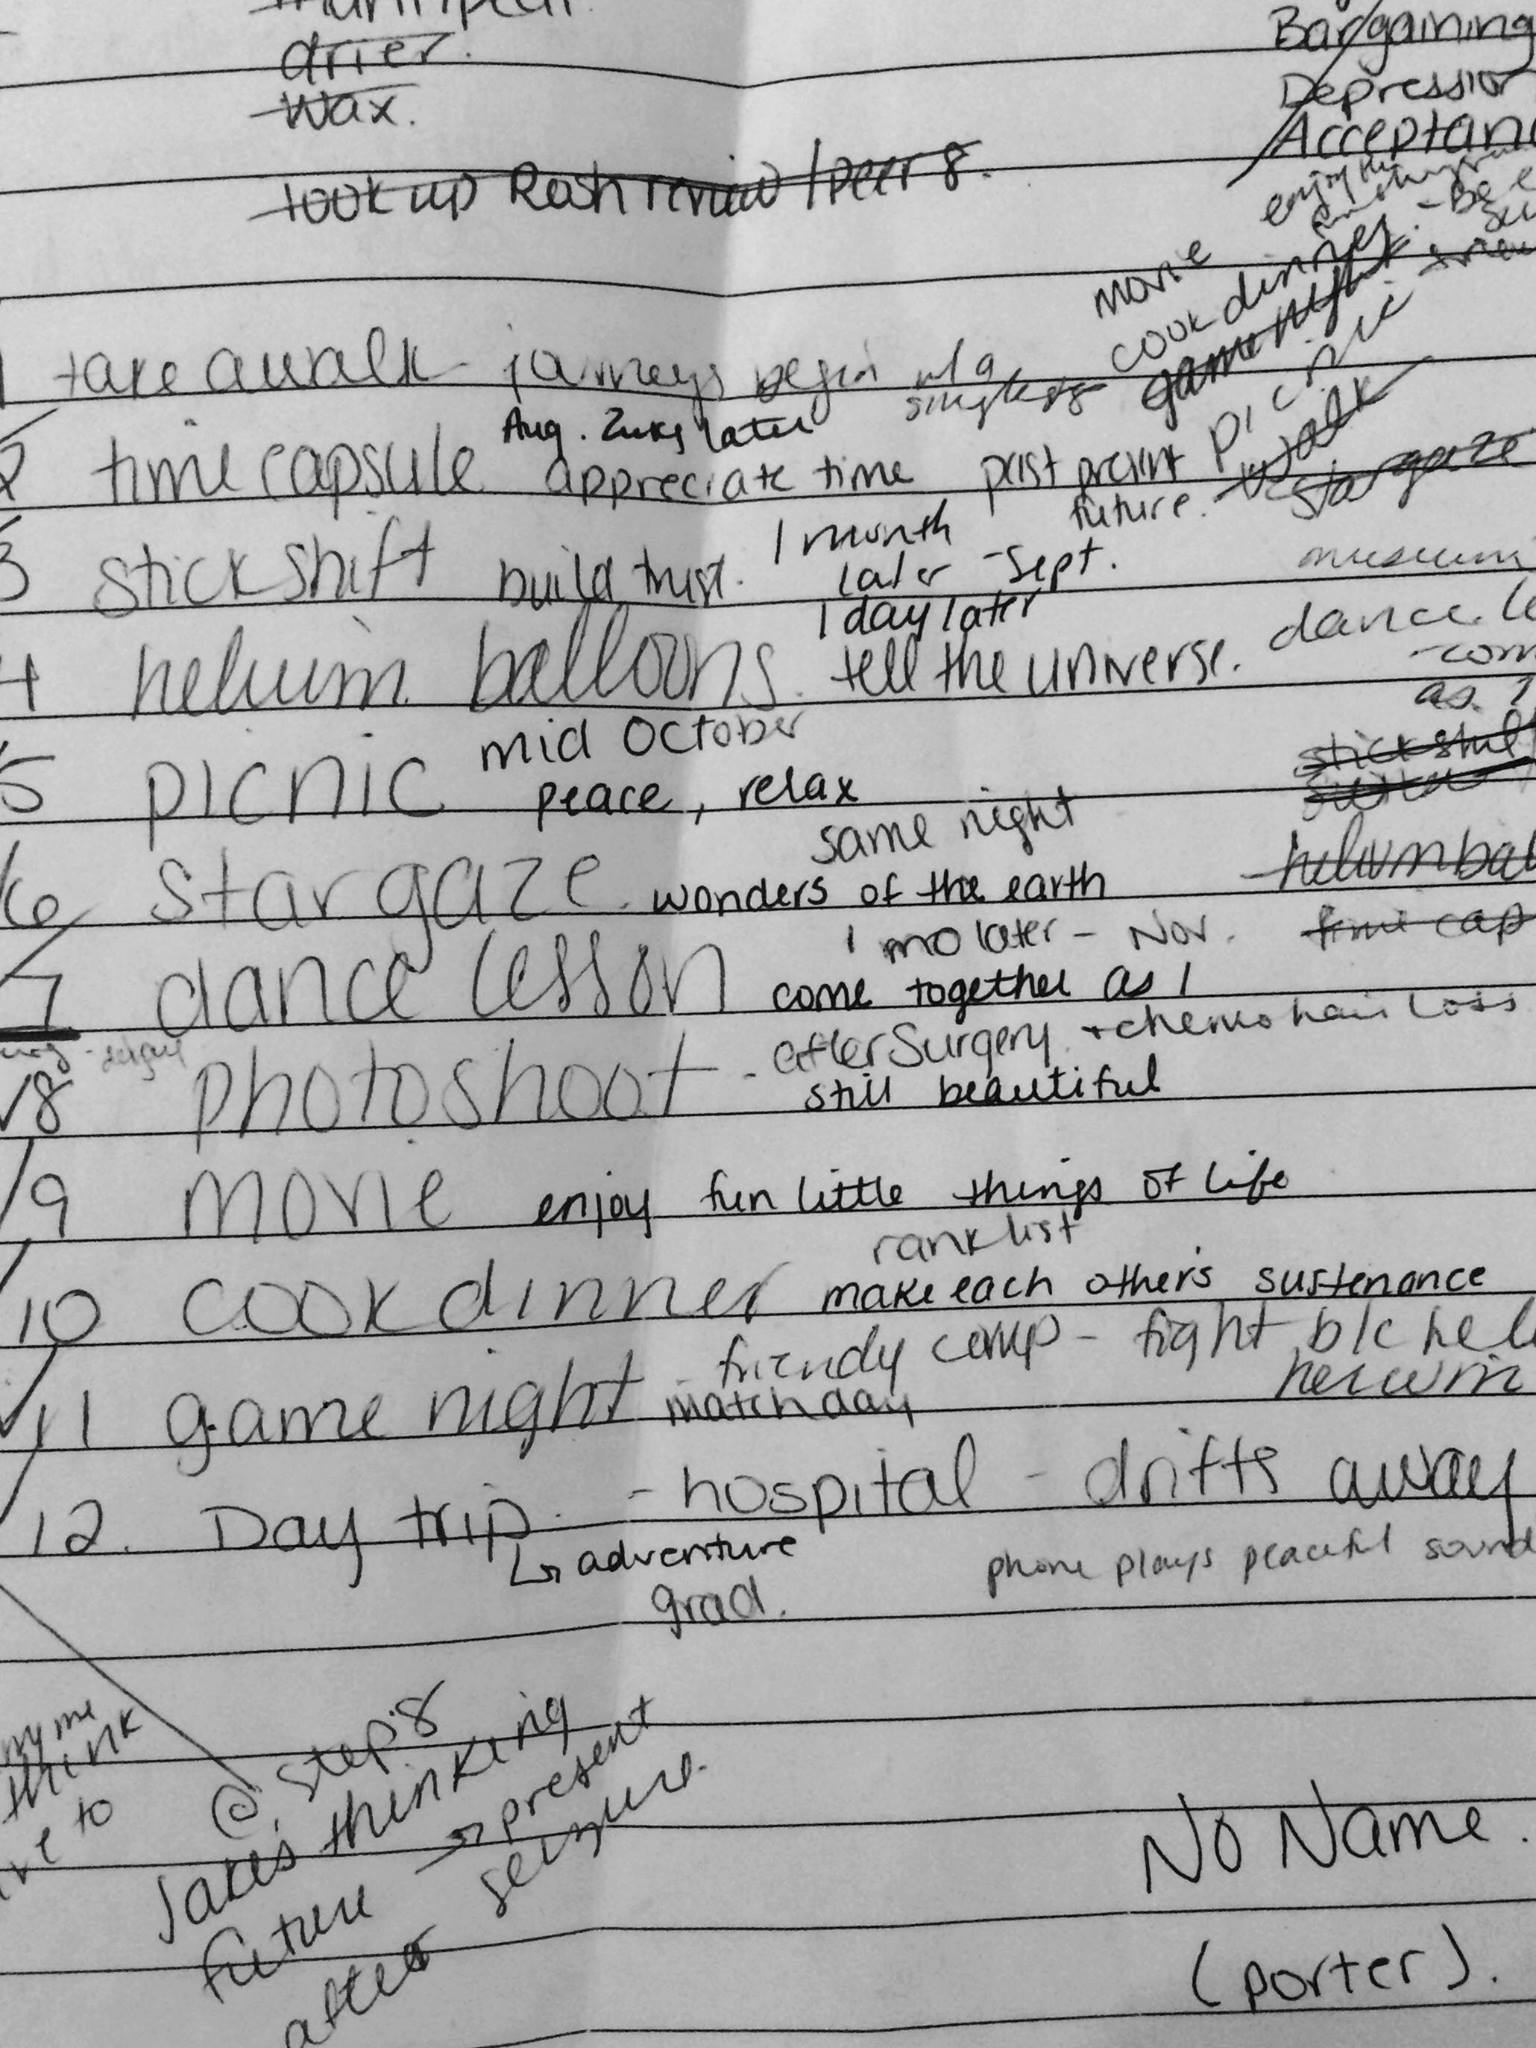 drier.
wax.
look up Rosh review / peer 8.
Bargaining
Depression
Acceptan
enjoy the
movie
cook dinner.
game night
picnic
walk
stargaze
museum
dance. le
- com
as. 1
stick shif
helium bal
time cap
1 take a walk - journeys begin w/ a
single step
Aug. 2 wks later
2 time capsule appreciate time past present
future.
3 stick shift build trust. 1 month
later - Sept.
1 day later
4 helium balloons. tell the universe.
mid October
5 picnic peace, relax
same night
6 stargaze. wonders of the earth
1 mo later - Nov.
7 dance lesson come together as 1
8 photoshoot - after surgery + chemo hair loss
still beautiful
9 movie enjoy fun little things of life
rank list
10 cook dinner make each other's sustenance
11 game night - friendly comp - fight b/c he l
her win
match day
12. Day trip. - hospital - drifts away
↳ adventure
grad.
phone plays peaceful sound
my me
think
ve to
@ step 8
Jake's thinking
future → present
after seizure.
No Name.
(porter).